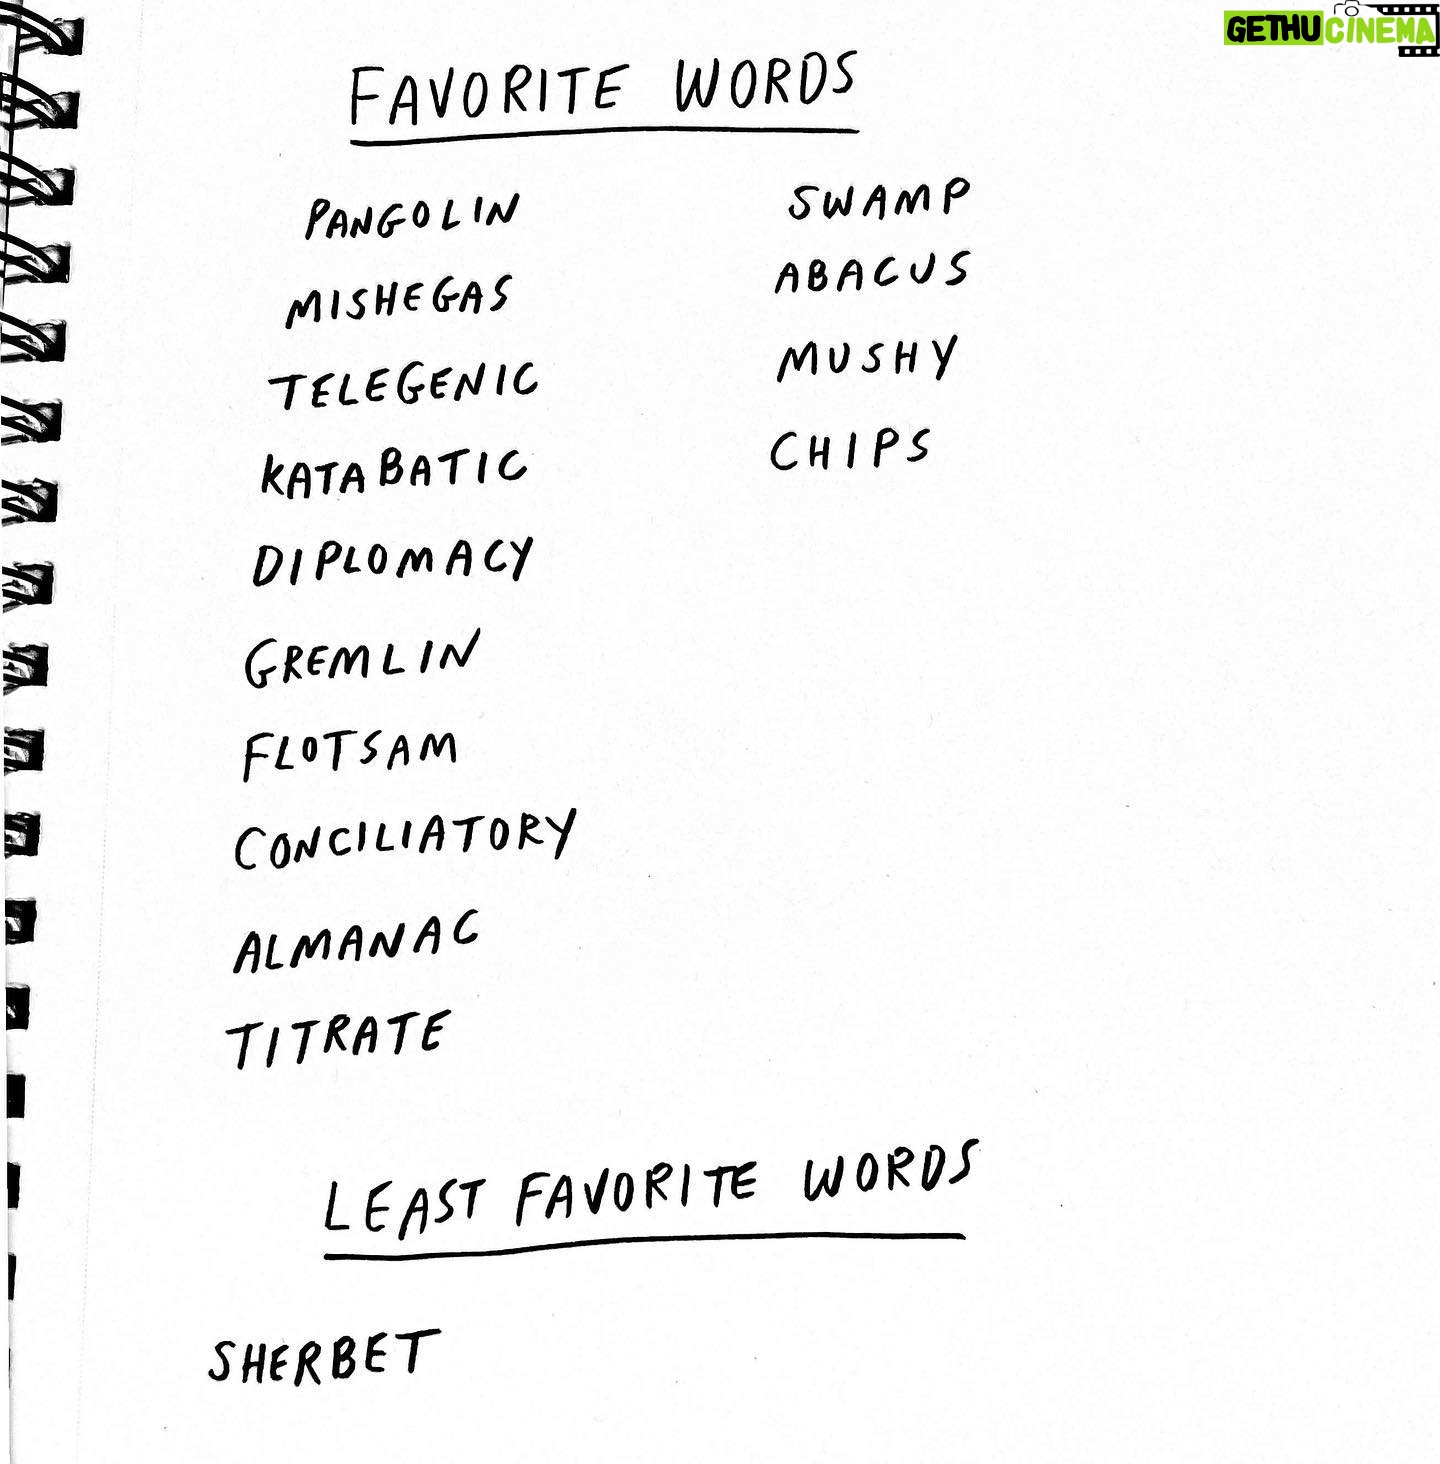 GETHUCINEMA
FAVORITE WORDS
PANGOLIN
MISHEGAS
TELEGENIC
KATABATIC
DIPLOMACY
GREMLIN
FLOTSAM
CONCILIATORY
ALMANAC
TITRATE
SWAMP
ABACUS
MUSHY
CHIPS
LEAST FAVORITE WORDS
SHERBET